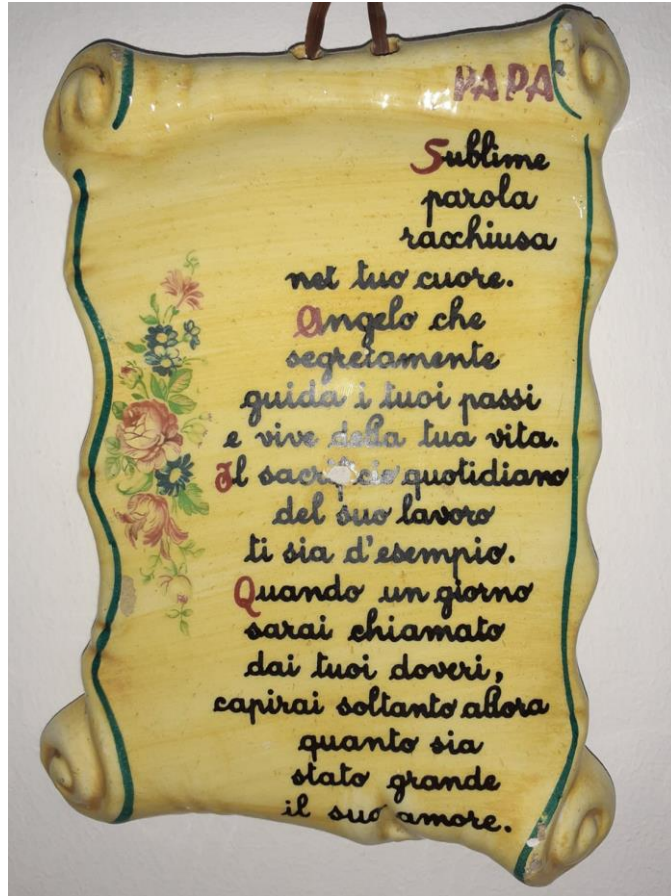 PAPA'
Sublime
parola
racchiusa
nel tuo cuore.
Angelo che
segretamente
guida i tuoi passi
e vive della tua vita.
Il sacrificio quotidiano
del suo lavoro
ti sia d'esempio.
Quando un giorno
sarai chiamato
dai tuoi doveri,
capirai soltanto allora
quanto sia
stato grande
il suo amore.